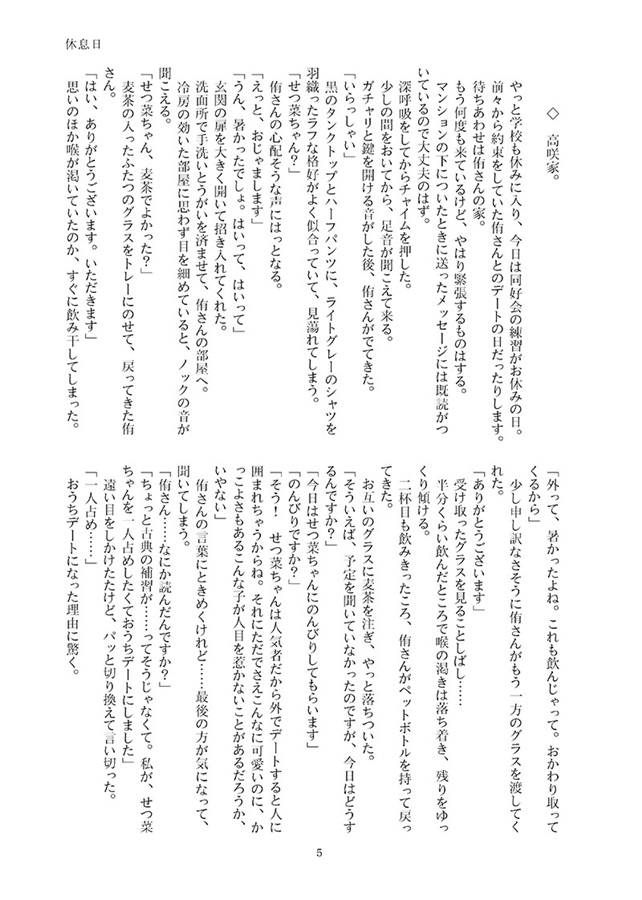 休息日
◇　高咲家。
　やっと学校も休みに入り、今日は同好会の練習がお休みの日。
前々から約束をしていた侑さんとのデートの日だったりします。
待ちあわせは侑さんの家。
　もう何度も来ているけど、やはり緊張するものはする。
　マンションの下についたときに送ったメッセージには既読がつ
いているので大丈夫のはず。
　深呼吸をしてからチャイムを押した。
　少しの間をおいてから、足音が聞こえて来る。
　ガチャリと鍵を開ける音がした後、侑さんがでてきた。
「いらっしゃい」
　黒のタンクトップとハーフパンツに、ライトグレーのシャツを
羽織ったラフな格好がよく似合っていて、見蕩れてしまう。
「せつ菜ちゃん？」
　侑さんの心配そうな声にはっとなる。
「えっと、おじゃまします」
「うん、暑かったでしょ。はいって、はいって」
　玄関の扉を大きく開いて招き入れてくれた。
　洗面所で手洗いとうがいを済ませて、侑さんの部屋へ。
　冷房の効いた部屋に思わず目を細めていると、ノックの音が
聞こえる。
「せつ菜ちゃん、麦茶でよかった？」
　麦茶の入ったふたつのグラスをトレーにのせて、戻ってきた侑
さん。
「はい、ありがとうございます。いただきます」
　思いのほか喉が渇いていたのか、すぐに飲み干してしまった。
「外って、暑かったよね。これも飲んじゃって。おかわり取って
くるから」
　少し申し訳なさそうに侑さんがもう一方のグラスを渡してく
れた。
「ありがとうございます」
　受け取ったグラスを見ることしばし……
　半分くらい飲んだところで喉の渇きは落ち着き、残りをゆっ
くり傾ける。
　二杯目も飲みきったころ、侑さんがペットボトルを持って戻っ
てきた。
　お互いのグラスに麦茶を注ぎ、やっと落ちついた。
「そういえば、予定を聞いていなかったのですが、今日はどうす
るんですか？」
「今日はせつ菜ちゃんにのんびりしてもらいます」
「のんびりですか？」
「そう！　せつ菜ちゃんは人気者だから外でデートすると人に
囲まれちゃうからね。それにただでさえこんなに可愛いのに、か
っこよさもあるこんな子が人目を惹かないことがあるだろうか、
いやない」
　侑さんの言葉にときめくけれど……最後の方が気になって、
聞いてしまう。
「侑さん……なにか読んだんですか？」
「ちょっと古典の補習が……ってそうじゃなくて。私が、せつ菜
ちゃんを一人占めしたくておうちデートにしました」
　遠い目をしかけたけど、パッと切り換えて言い切った。
「一人占め……」
　おうちデートになった理由に驚く。
5